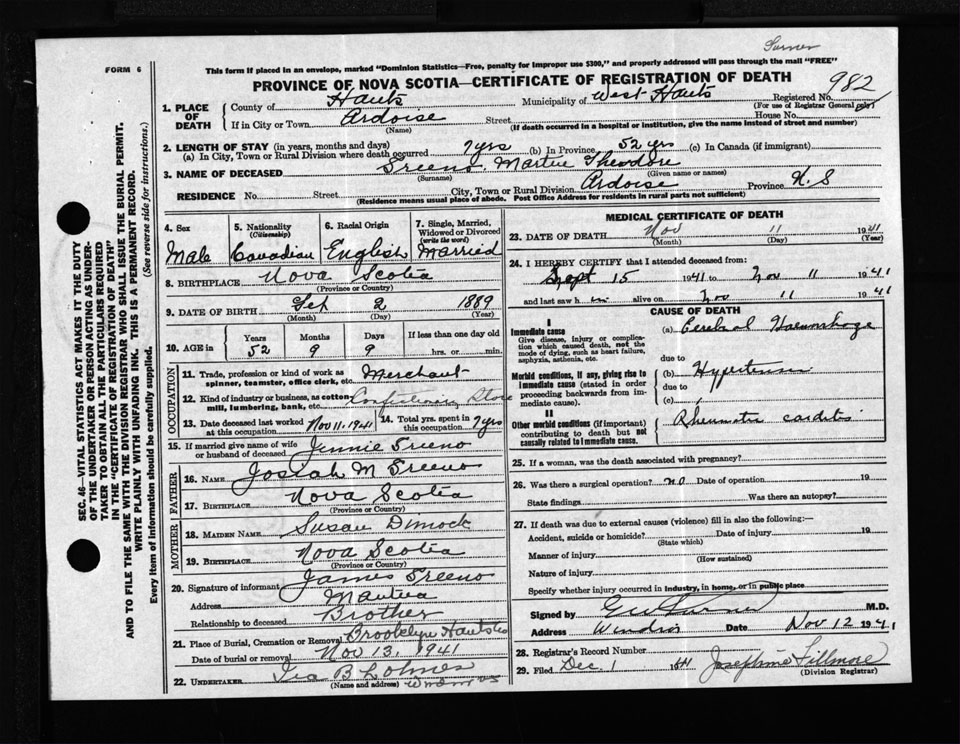 Turner
FORM 6
This form if placed in an envelope, marked "Dominion Statistics—Free, penalty for improper use $300," and properly addressed will pass through the mail "FREE"
PROVINCE OF NOVA SCOTIA—CERTIFICATE OF REGISTRATION OF DEATH
982
1. PLACE OF DEATH County of Hants Municipality of West Hants Registered No.
(For use of Registrar General only)
If in City or Town Ardoise Street House No.
(Name) (If death occurred in a hospital or institution, give the name instead of street and number)
2. LENGTH OF STAY (in years, months and days)
(a) In City, Town or Rural Division where death occurred 7 yrs (b) In Province 52 yrs (c) In Canada (if immigrant)
3. NAME OF DECEASED Theodore
(Surname) (Given name or names)
RESIDENCE No. Street City, Town or Rural Division Ardoise Province N. S
(Residence means usual place of abode. Post Office Address for residents in rural parts not sufficient)
4. Sex Male
5. Nationality (Citizenship) Canadian
6. Racial Origin English
7. Single, Married, Widowed or Divorced (write the word) Married
8. BIRTHPLACE Nova Scotia
(Province or Country)
9. DATE OF BIRTH 2 1889
(Month) (Day) (Year)
10. AGE in Years 52 Months 9 Days 9 If less than one day old hrs. or min.
OCCUPATION
11. Trade, profession or kind of work as spinner, teamster, office clerk, etc. Merchant
12. Kind of industry or business, as cotton mill, lumbering, bank, etc. Confectionery Store
13. Date deceased last worked at this occupation Nov 11, 1941
14. Total yrs. spent in this occupation 7 yrs
15. If married give name of wife or husband of deceased Jennie Freeno
FATHER
16. NAME Josiah M Freeno
17. BIRTHPLACE Nova Scotia
(Province or Country)
MOTHER
18. MAIDEN NAME Susan Dimock
19. BIRTHPLACE Nova Scotia
(Province or Country)
20. Signature of informant James Freeno
Address Mantua
Relationship to deceased Brother
21. Place of Burial, Cremation or Removal Brooklyn Hants Co
Date of burial or removal Nov 13, 1941
22. UNDERTAKER Ira B Lohnes
(Name and address) Windsor NS
MEDICAL CERTIFICATE OF DEATH
23. DATE OF DEATH Nov 11 1941
(Month) (Day) (Year)
24. I HEREBY CERTIFY that I attended deceased from:
Sept 15 1941 to Nov 11 1941
and last saw him alive on Nov 11 1941
CAUSE OF DEATH
I
Immediate cause
Give disease, injury or complication which caused death, not the mode of dying, such as heart failure, asphyxia, asthenia, etc.
(a) Cerebral Haemorrhage
due to
Morbid conditions, if any, giving rise to immediate cause (stated in order proceeding backwards from immediate cause).
(b) Hypertension
due to
(c)
II
Other morbid conditions (if important) contributing to death but not causally related to immediate cause.
Rheumatic carditis
25. If a woman, was the death associated with pregnancy?
26. Was there a surgical operation? no Date of operation 19
State findings Was there an autopsy?
27. If death was due to external causes (violence) fill in also the following:—
Accident, suicide or homicide? Date of injury 19
(State which)
Manner of injury
(How sustained)
Nature of injury
Specify whether injury occurred in industry, in home, or in public place
Signed by M.D.
Address Windsor Date Nov 12 1941
28. Registrar's Record Number
29. Filed Dec. 1 1941 Josephine Fillmore
(Division Registrar)
SEC. 46—VITAL STATISTICS ACT MAKES IT THE DUTY
OF THE UNDERTAKER OR PERSON ACTING AS UNDER-
TAKER TO OBTAIN ALL THE PARTICULARS REQUIRED
IN THE "CERTIFICATE OF REGISTRATION OF DEATH"
AND TO FILE THE SAME WITH THE DIVISION REGISTRAR WHO SHALL ISSUE THE BURIAL PERMIT.
WRITE PLAINLY WITH UNFADING INK. THIS IS A PERMANENT RECORD.
Every item of information should be carefully supplied. (See reverse side for instructions.)